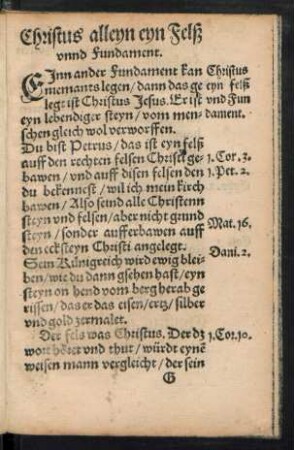 Christus alleyn eyn Felß
vnnd Fundament.
EInn ander Fundament kan
niemants legen/ dann das ge
legt ist Christus Jesus. Er ist
eyn lebendiger steyn/ vom men
schen gleich wol verworffen.
Du bist Petrus/ das ist eyn felß
auff den rechten felsen Christ ge
bawen/ vnd auff disen felsen den
du bekennest/ wil ich mein kirch
bawen/ Also seind alle Christenn
steyn vnd felsen/ aber nicht grund
steyn/ sonder aufferbawen auff
den ecksteyn Christi angelegt.
Sein Künigreich wird ewig blei
ben/ wie du dann gsehen hast/ eyn
steyn on hend vom berg herab ge
rissen/ das er das eisen/ ertz/ silber
vnd gold zermalet.
Der fels was Christus. Der dz
wort höret vnd thut/ würdt eynē
weisen mann vergleicht/ der sein
G
Christus
eyn felß
vnd Fun
dament.
1. Cor. 3.
1. Pet. 2.
Mat. 16.
Dani. 2.
1. Cor. 10.